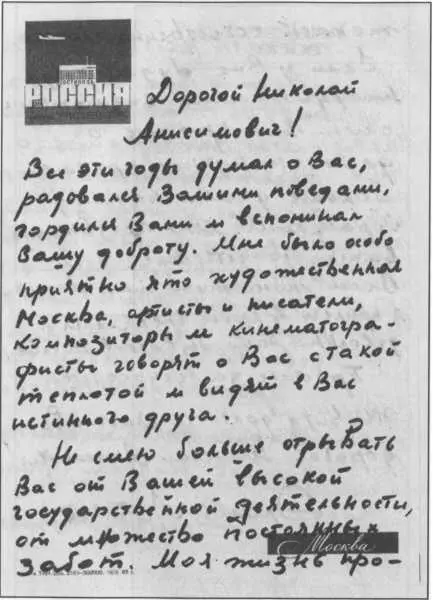 ГОСТИНИЦА
РОССИЯ
Дорогой Николай
Анисимович!
Все эти годы думал о Вас,
радовался Вашими победами,
гордился Вами и вспоминал
Вашу доброту. Мне было особо
приятно что художественная
Москва, артисты и писатели,
композиторы и кинематогра-
фисты говорят о Вас с такой
теплотой и видят в Вас
истинного друга.
Не смею больше отрывать
Вас от Вашей высокой
государственной деятельности,
от множество постоянных
забот. Моя жизнь про-
Москва